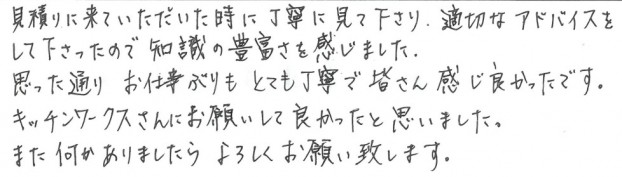 見積りに来ていただいた時に丁寧に見て下さり、適切なアドバイスを
して下さったので知識の豊富さを感じました。
思った通り お仕事ぶりも とても丁寧で皆さん 感じ良かったです。
キッチンワークスさんにお願いして良かったと思いました。
また何かありましたら よろしくお願い致します。